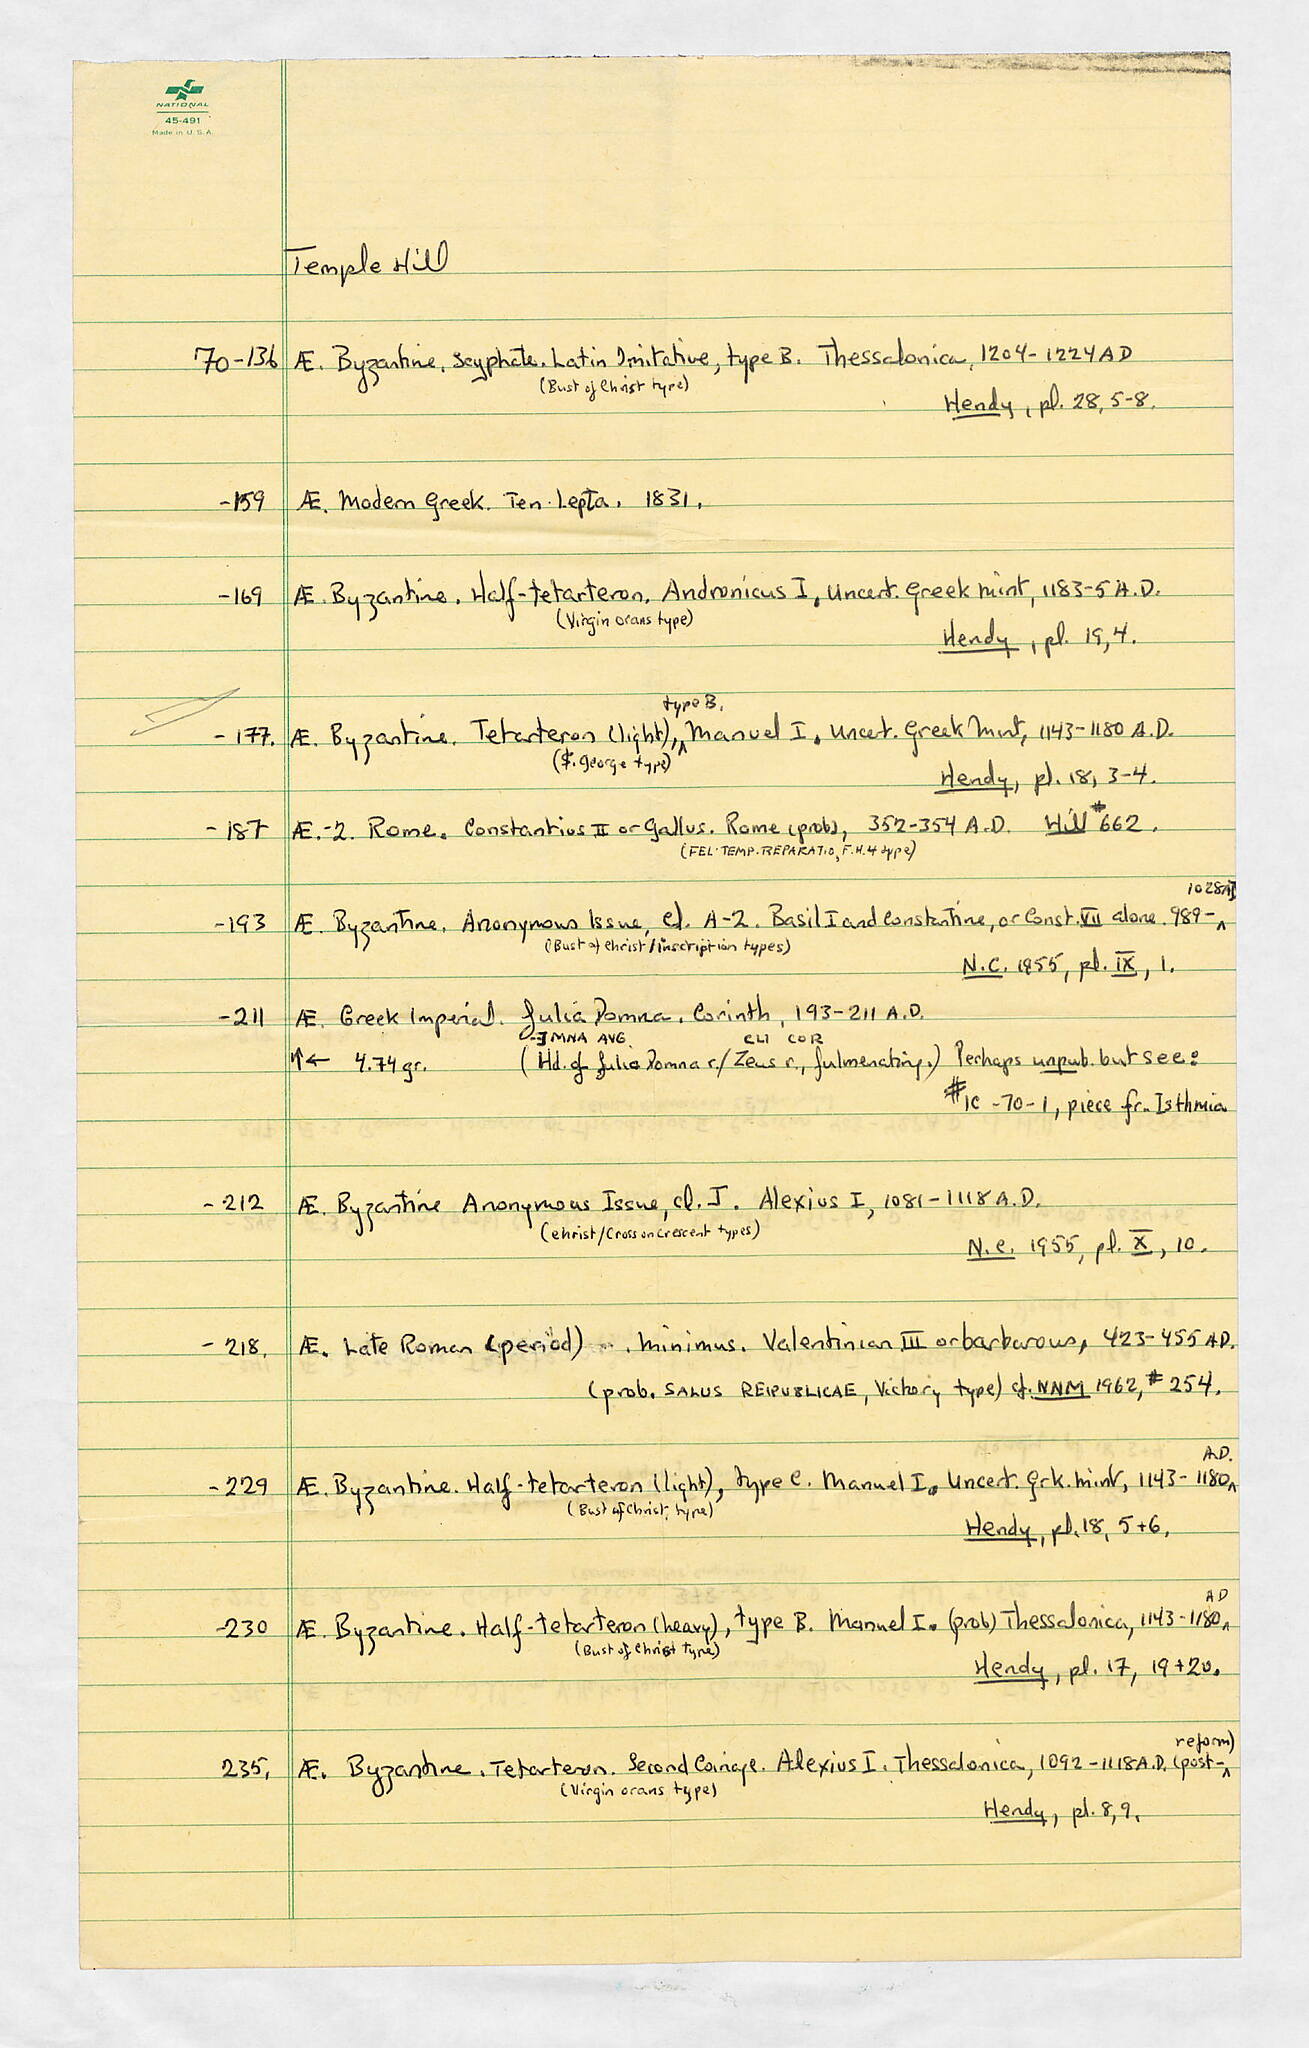 NATIONAL
45-491
Made in U.S.A.
Temple Hill
70-136 Æ. Byzantine. Scyphate. Latin Imitative, type B. Thessalonica, 1204-1224 AD
(Bust of Christ type)
Hendy, pl. 28, 5-8.
-159 Æ. Modern Greek. Ten Lepta. 1831.
-169 Æ. Byzantine. Half-tetarteron. Andronicus I. Uncert. Greek mint, 1183-5 A.D.
(Virgin orans type)
Hendy, pl. 19, 4.
type B.
-177. Æ. Byzantine. Tetarteron (light), ^ Manuel I. Uncert. Greek Mint, 1143-1180 A.D.
(St. George type)
Hendy, pl. 18, 3-4.
-187 Æ.-2. Rome. Constantius II or Gallus. Rome (prob), 352-354 A.D. Hill #662.
(FEL·TEMP·REPARATIO, F.H.4 type)
1028 AD
-193 Æ. Byzantine. Anonymous Issue, cl. A-2. Basil I and Constantine, or Const. VII alone. 989-^
(Bust of Christ/inscription types)
N.C. 1955, pl. IX, 1.
-211 Æ. Greek Imperial. Julia Domna. Corinth, 193-211 A.D.
-]MNA AVG. CLI COR
↑← 4.74 gr. (Hd. of Julia Domna r./Zeus r., fulmenating.) Perhaps unpub. but see:
#IC-70-1, piece fr. Isthmia
-212 Æ. Byzantine Anonymous Issue, cl. J. Alexius I, 1081-1118 A.D.
(Christ/Cross on Crescent types)
N.C. 1955, pl. X, 10.
-218. Æ. Late Roman (period) . minimus. Valentinian III or barbarous, 423-455 AD.
(prob. SALUS REIPUBLICAE, Victory type) cf. NNM 1962, #254.
A.D.
-229 Æ. Byzantine. Half-tetarteron (light), type C. Manuel I. Uncert. Grk. mint, 1143-1180^
(Bust of Christ, type)
Hendy, pl. 18, 5+6.
AD
-230 Æ. Byzantine. Half-tetarteron (heavy), type B. Manuel I. (prob) Thessalonica, 1143-1180^
(Bust of Christ type)
Hendy, pl. 17, 19+20.
reform)
235. Æ. Byzantine. Tetarteron. Second Coinage. Alexius I. Thessalonica, 1092-1118 A.D. (post-^
(Virgin orans type)
Hendy, pl. 8, 9.